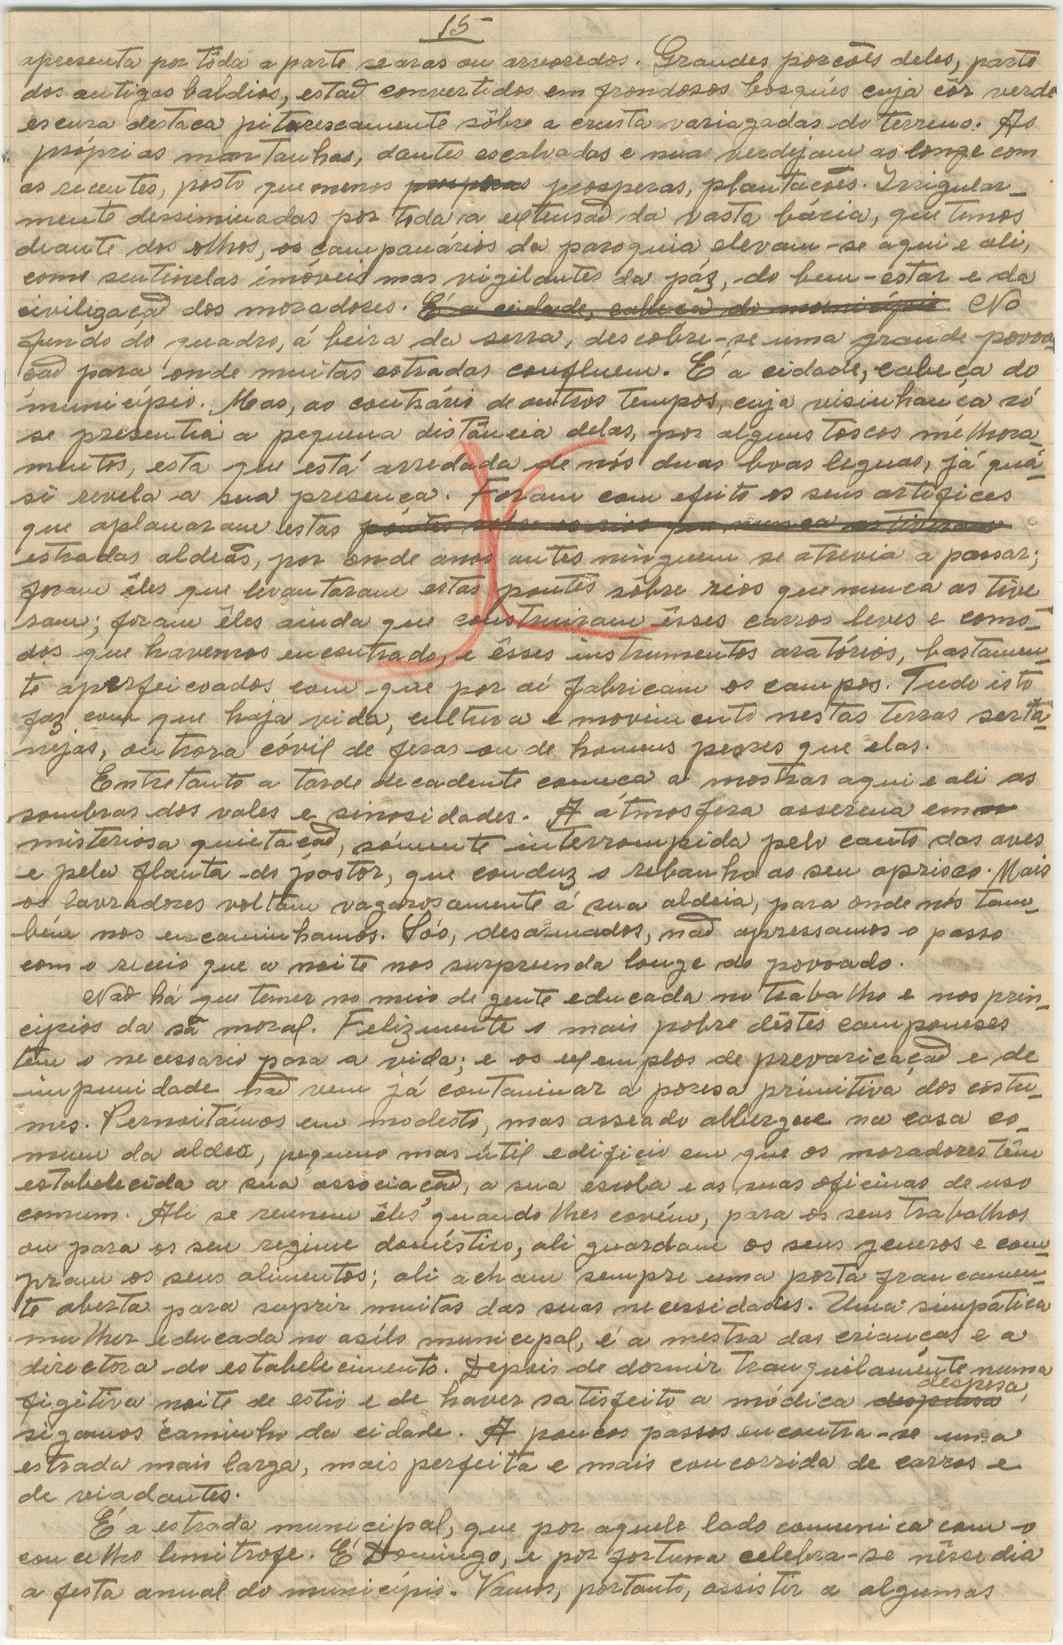 15
apresenta por tôda a parte searas ou arvoredos. Grandes porcoẽs deles, parte
dos antigos baldios, estaõ convertidos em frondosos bosques cuja côr verde
escura destaca pitorescamente sôbre a crusta variagadas do terreno. As
proprias montanhas, dantes escalvadas e nuas verdejam ao longe com
as recentes, posto que menos prosperas prosperas, plantacoẽs. Irrigular-
mente dessiminadas por toda a extensaõ da vasta bácia, que temos
deante dos olhos, os campanários da paroquia elevam-se aqui e ali,
como sentinelas imoveis mas vigilantes da páz, do bem-estar e da
civilizaçaõ dos moradores. É a cidade, cabeça do município No
fundo do quadro, á beira da serra, descobre-se uma grande povoa-
çaõ para onde muitas estradas confluem. É a cidade, cabeça do
município. Mas, ao contrário de outros tempos, cuja visinhança só
se presentia a pequena distância delas, por alguns toscos melhora-
mentos, esta que está arredada de nós duas boas leguas, já quá-
si revela a sua presença. Foram com efeito os seus artifices
que aplanaram estas pontes sobre os rios que nunca as tiveram
estradas aldeãs, por onde anos antes ninguem se atrevia a passar;
foram êles que levantaram estas pontes sôbre rios que nunca as tive
ram; foram êles ainda que construiram êsses carros leves e como-
dos que havemos encontrado, e êsses instrumentos aratórios, bastamen-
te aperfeicoados com que por aí fabricam os campos. Tudo isto
faz com que haja vida, cultura e movimento nestas terras sertã-
nejas, outrora cóvil de feras ou de homens peores que elas.
Entretanto a tarde decadente comeca a mostrar aqui e ali as
sombras dos vales e sinosidades. A atmosfera asserena em
misteriosa quietaçaõ, sómente interrompida pelo canto das aves
e pela flauta do pastor, que conduz o rebanho ao seu aprisco. Mais
os lavradores voltam vagarosamente á sua aldeia, para onde nós tam-
bém nos encaminhamos. Sós, desarmados, naõ apressamos o passo
com o receio que a noite nos surpreenda longe do povoado.
Naõ há que temer no meio de gente educada no trabalho e nos prin-
cipios da sã moral. Felizmente o mais pobre dêstes camponeses
têm o necessario para a vida; e os exemplos de prevaricaçaõ e de
impunidade naõ vem já contaminar a poresa primitiva dos costu-
mes. Pernoitámos em modesto, mas asseado albergue na casa co-
mum da aldea, pequeno mas útil edificio em que os moradores têm
estabelecida a sua associaçaõ, a sua escola e as suas oficinas de uso
comum. Ali se reunem êles quando lhes covém, para os seus trabalhos
ou para os seu regime doméstico, ali guardam os seus generos e com-
pram os seus alimentos; ali acham sempre uma porta francamen-
te aberta para suprir muitas das suas necessidades. Uma simpática
mulher educada no asílo municipal, é a mestra das crianças e a
directora do estabelecimento. Depois de dormir tranquilamente numa
figitiva noite de estio e de haver satisfeito a módica despensa despesa,
sigamos caminho da cidade. A poucos passos encontra-se uma
estrada mais larga, mais perfeita e mais concorrida de carros e
de viadantes.
É a estrada municipal, que por aquele lado comunica com o
concelho limitrofe. É Domingo, e por fortuna celebra-se nêsse dia
a festa anual do município. Vamos, portanto, assistir a algumas